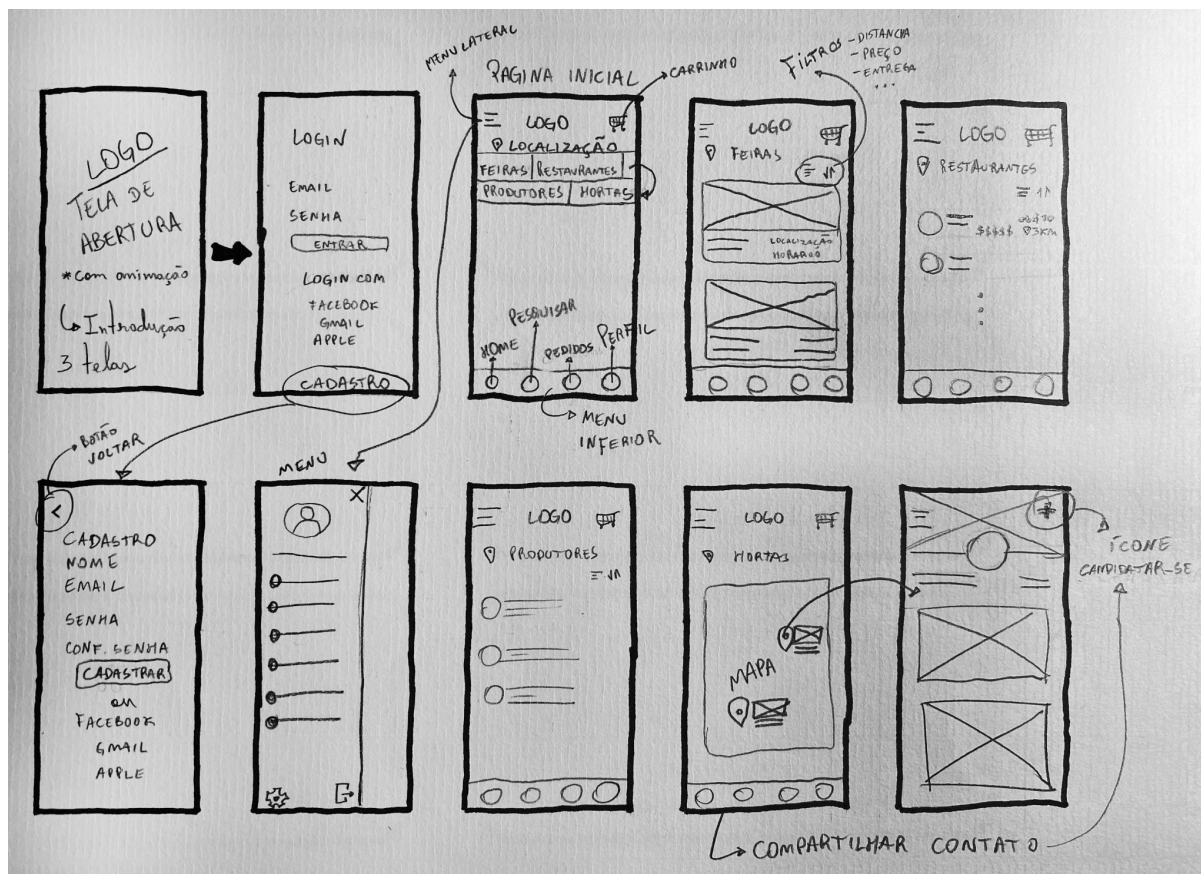 LOGO
TELA DE
ABERTURA
*com animação
Introdução
3 telas
LOGIN
EMAIL
SENHA
ENTRAR
LOGIN COM
FACEBOOK
GMAIL
APPLE
CADASTRO
MENU LATERAL
PAGINA INICIAL
CARRINHO
LOGO
LOCALIZAÇÃO
FEIRAS RESTAURANTES
PRODUTORES HORTAS
HOME
PESQUISAR
PEDIDOS
PERFIL
MENU
INFERIOR
FILTROS - DISTANCIA
- PREÇO
- ENTREGA
...
LOGO
FEIRAS
LOCALIZAÇÃO
LOGO
RESTAURANTES
$$$$$ 3KM
BOTÃO
VOLTAR
<
CADASTRO
NOME
EMAIL
SENHA
CONF. SENHA
CADASTRAR
ou
FACEBOOK
GMAIL
APPLE
MENU
X
LOGO
PRODUTORES
LOGO
HORTAS
MAPA
ÍCONE
CANDIDATAR-SE
COMPARTILHAR CONTATO